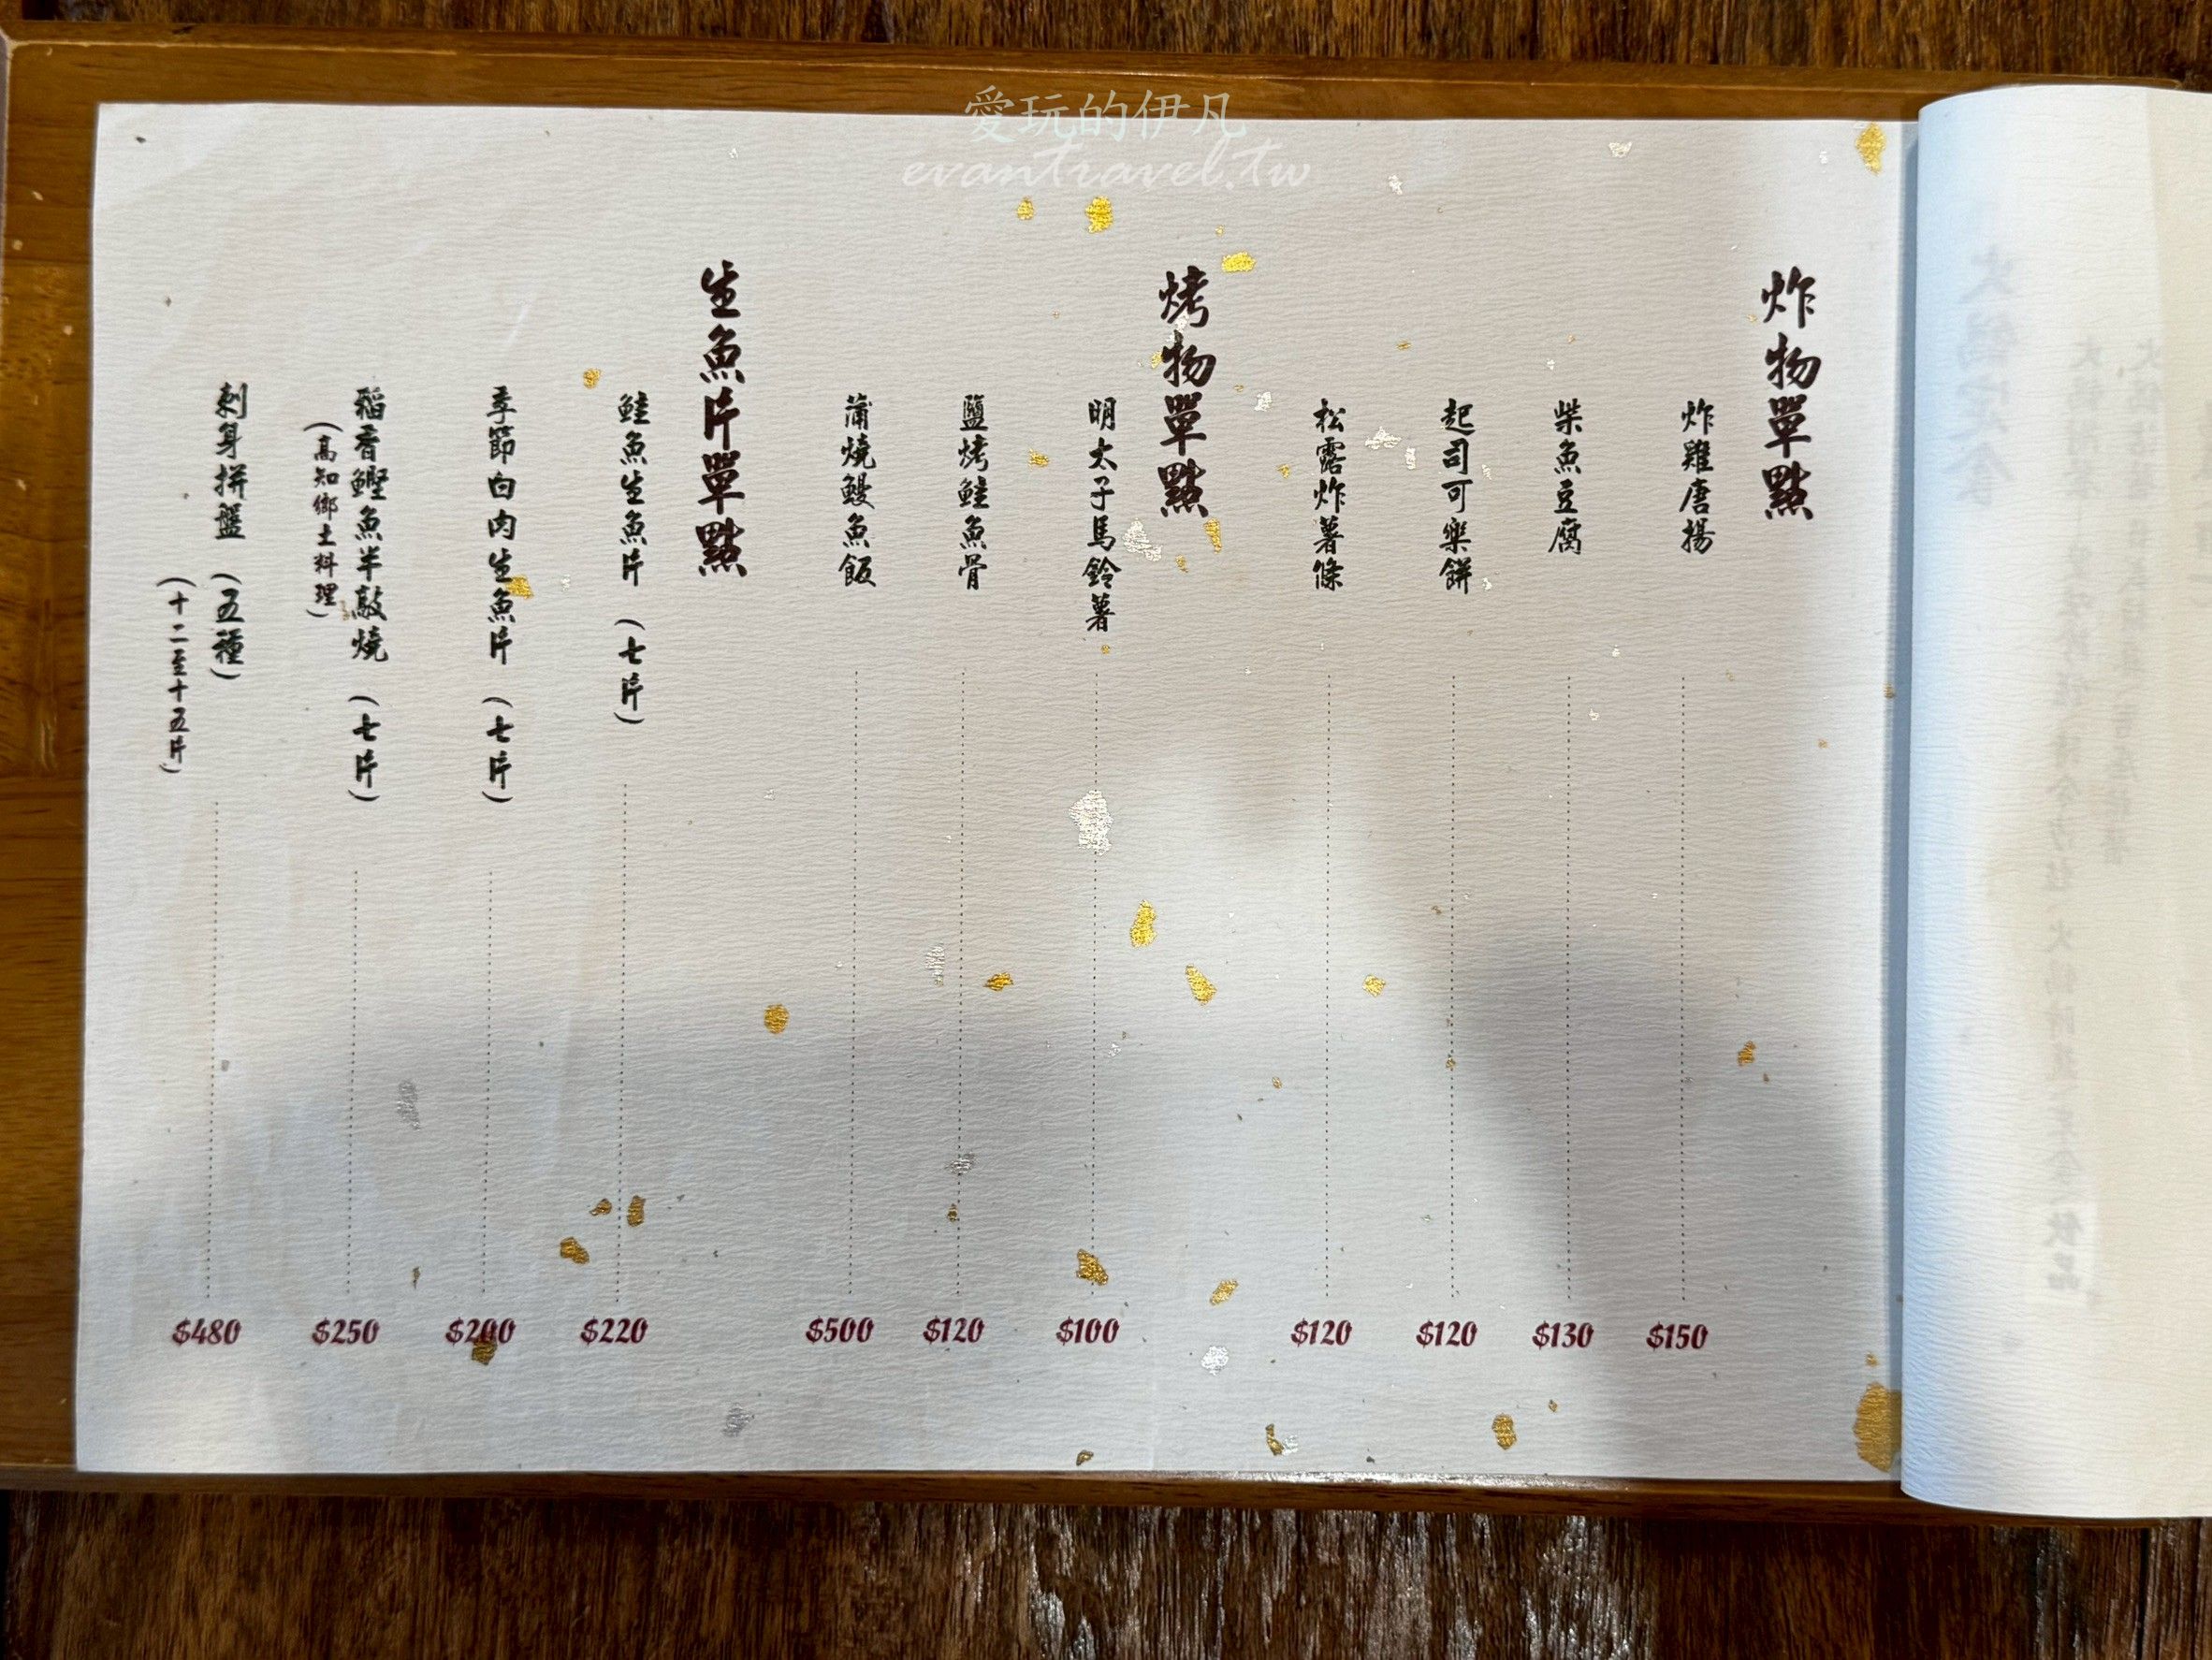 愛玩的伊凡
evantravel.tw
炸物單點
炸雞唐揚
$150
柴魚豆腐
$130
起司可樂餅
$120
松露炸薯條
$120
烤物單點
明太子馬鈴薯
$100
鹽烤鮭魚骨
$120
蒲燒鰻魚飯
$500
生魚片單點
鮭魚生魚片(七片)
$220
季節白肉生魚片(七片)
$200
稻香鰹魚半敲燒(七片)
(高知鄉土料理)
$250
刺身拼盤(五種)
(十二至十五片)
$480